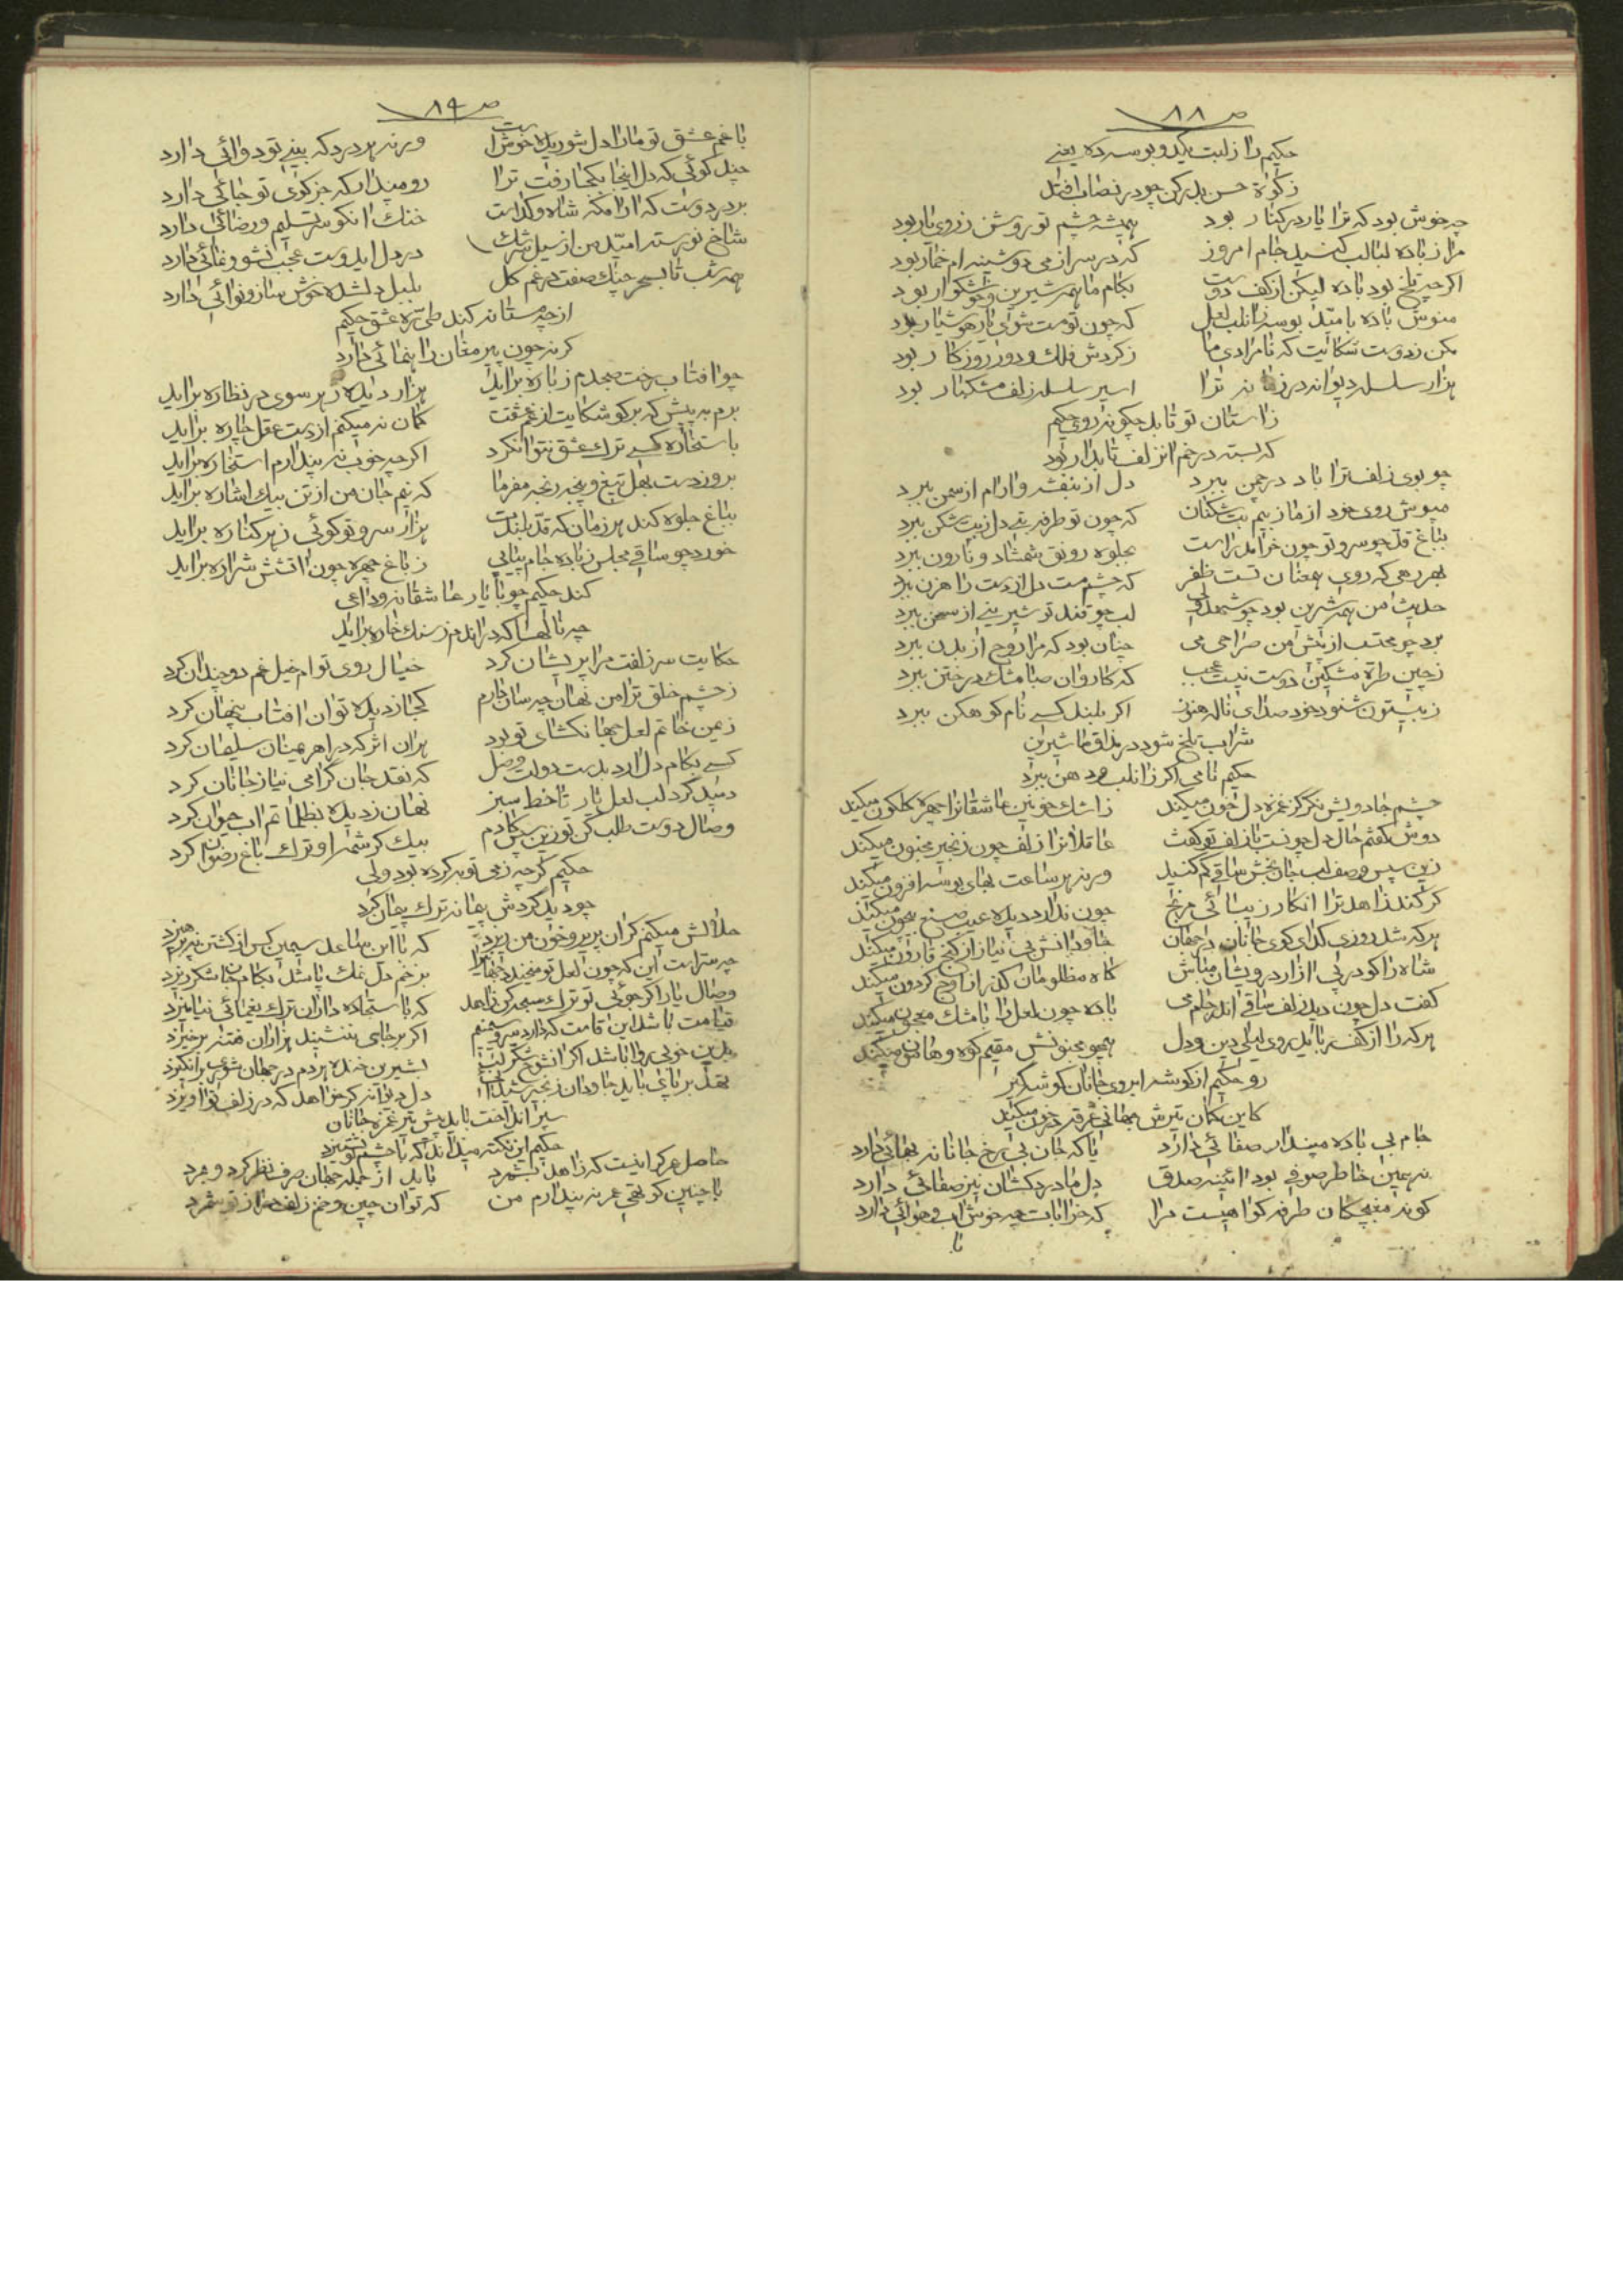 ص ٨٨
حکیم را ز لبت یکدو بوسه ده یعنی
زکوة حسن بده کن چو در نصاب افتد
چه خوش بود که ترا یار در کنار بود همیشه چشم تو روشن ز روی یار بود
مرا ز باده لبالب کنید جام امروز که در سر از می دوشینه ام خمار بود
اکرچه تلخ بود باده لیکن از کف دوست بکام ما همه شیرین و خوشکوار بود
منوش باده بامید بوسه زان لب لعل که چون تو مست شوی یار هوشیار بود
مکن ز دوست شکایت که نامرادی ما ز کردش فلک و دور روزکار بود
هزار سلسله دیوانه در زمانه ترا اسیر سلسله زلف مشکبار بود
ز استان تو تابد چکونه روی حکیم
که بسته در خم انزلف تابدار بود
چو بوی زلف ترا باد در چمن ببرد دل از بنفشه و ارام از سمن ببرد
مپوش روی خود از ما ز بیم بت شکنان که چون تو طرفه بتی دل ز بت شکن ببرد
بباغ قد چو سرو تو چون خرامد راست بجلوه رونق شمشاد و نارون ببرد
بهر رهی که روی همعنان تست ظفر که چشم مست دل از دست راهزن ببرد
حدیث من همه شیرین بود چو شهد ولی لب چو قند تو شیرینی از سخن ببرد
برد چو محتسب از پیش من صراحی می چنان بود که مرا روح از بدن ببرد
ز چین طره مشکین دوست نیست عجب که کاروان صبا مشک در ختن ببرد
ز بیستون شنود خود صدای ناله هنوز اکر بلند کسی نام کوهکن ببرد
شراب تلخ شود در مذاق ما شیرین
حکیم نامی اکر زان لب و دهن ببرد
چشم جادویش نکر کز غمزه دل خون میکند ز اشک خونین عاشقانرا چهره کلکون میکند
دوش کفتم حال دل چونست با زلف تو کفت عاقلانرا زلف چون زنجیر مجنون میکند
زین سپس وصف لب جان بخش ساقی کم کنید ورنه هر ساعت بهای بوسه افزون میکند
کر کند زاهد ترا انکار زیبائی مرنج چون ندارد دیده عیب صنع بیچون میکند
هرکه شد روزی کدای کوی جانان در جهان جاودانش بی نیاز از کنج قارون میکند
شاه را کو در پی ازار درویشان مباش کاه مظلومان کذر از اوج کردون میکند
کفت دل چون دید زلف ساقی اندر جام می باده چون لعل را با مشک معجون میکند
هرکه را از کف رباید روی لیلی دین و دل همچو مجنونش مقیم کوه و هامون میکند
رو حکیم از کوشه ابروی جانان کوشه کیر
کاین کمان تیرش جهانی غرقه در خون میکند
جام بی باده مپندار صفائی دارد یا که جان بی رخ جانانه بهائی دارد
نه همین خاطر صوفی بود ائینه صدق دل ما دردکشان نیز صفائی دارد
کوند مغبچکان طرفه کواهیست مرا که خرابات چه خوش اب و هوائی دارد
با
ص ٨٩
با غم عشق تو ما را دل شوریده خوش است ورنه هر درد که بینی تو دوائی دارد
چند کوئی که دل اینجا بکجا رفت ترا رو مپندار که جز کوی تو جائی دارد
بر در دوست که ارامکه شاه و کداست خنک انکو سر تسلیم و رضائی دارد
شاخ نورسته امید من از سیل سرشک در دل ایدوست عجب نشو و نمائی دارد
همه شب تا بسحر چنک صفت در غم کل بلبل دلشده خوش ساز و نوائی دارد
از چه مستانه کند طی ره عشق حکیم
کرنه چون پیر مغان راهنمائی دارد
چو افتاب رخت صبحدم ز باره براید هزار دیده ز هر سوی در نظاره براید
برم به پیش که برکو شکایت از غم عشقت کمان نه میکنم از دست عقل چاره براید
باستخاره کسی ترک عشق نتوانکرد اکرچه خوب نه پندارم استخاره براید
برو ز دست بهل تیغ و پنجه رنجه مفرما که نیم جان من از تن بیک اشاره براید
بباغ جلوه کند هر زمان که قد بلندت هزار سرو تو کوئی ز هر کناره براید
خورد چو ساقی مجلس ز باده جام پیاپی ز باغ چهره چون اتشش شراره براید
کند حکیم چو با یار عاشقانه وداعی
چه نالها که در اندم ز سنک خاره براید
حکایت سر زلفت مرا پریشان کرد خیال روی توام خیل غم دو چندان کرد
ز چشم خلق ترا من نهان چه سان دارم کجا ز دیده توان افتاب پنهان کرد
ز مین خاتم لعل جهانکشای تو بود هران اثر که در اهریمنان سلیمان کرد
کسی بکام دل ارد بدست دولت وصل که نقد جان کرامی نیاز جانان کرد
دمید کرد لب لعل یار تا خط سبز نهان ز دیده بظلمات اب حیوان کرد
وصال دوست طلب کن تو زین سپس کادم بیک کرشمه او ترک باغ رضوان کرد
حکیم کرچه ز می توبه کرده بود ولی
چو دید کردش پیمانه ترک پیمان کرد
حلالش میکنم کر ان پریرو خون من ریزد که با این ساعد سیمین کس از کشتن نپرهیزد
چه سریست این که چون لعل تو میخندد جهانیرا بزخم دل نمک پاشد بکام جان شکر ریزد
وصال یار اکر جوئی تو ترک سبحه کن زاهد که با سجاده داران ترک یغمائی نیامیزد
قیامت باشد این قامت که دارد سرو سیمینم اکر برجای بنشیند هزاران فتنه برخیزد
بدین خوبی روا باشد اکر انشوخ شکر لب بشیرین خنده هردم در جهان شوری برانکیزد
بعقل بر پای باید جاودان زنجیر شیدائی دل دیوانه کر خواهد که در زلف تو اویزد
سپر انداخت باید پیش تیر غمزه جانان
حکیم این نکته میداند که با چشم تو نستیزد
حاصل عمر کرانیست که زاهد بشمرد باید از جمله جهان صرف نظر کرد و مرد
با چنین کوتهی عمر نه پندارم من که توان چین و خم زلف دراز تو شمرد